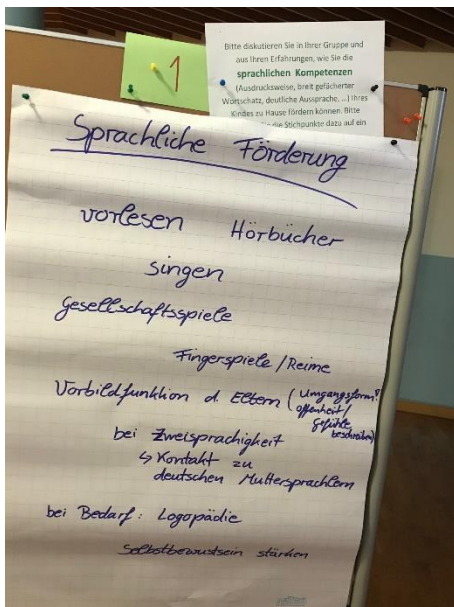 1
Bitte diskutieren Sie in Ihrer Gruppe und
aus Ihren Erfahrungen, wie Sie die
sprachlichen Kompetenzen
(Ausdrucksweise, breit gefächerter
Wortschatz, deutliche Aussprache, ...) Ihres
Kindes zu Hause fördern können. Bitte
die Stichpunkte dazu auf ein
Sprachliche Förderung
vorlesen Hörbücher
singen
Gesellschaftsspiele
Fingerspiele / Reime
Vorbildfunktion d. Eltern (Umgangsform?
offenheit /
Gefühle
beschreiben)
bei Zweisprachigkeit
↳ Kontakt zu
deutschen Muttersprachlern
bei Bedarf: Logopädie
Selbstbewustsein stärken